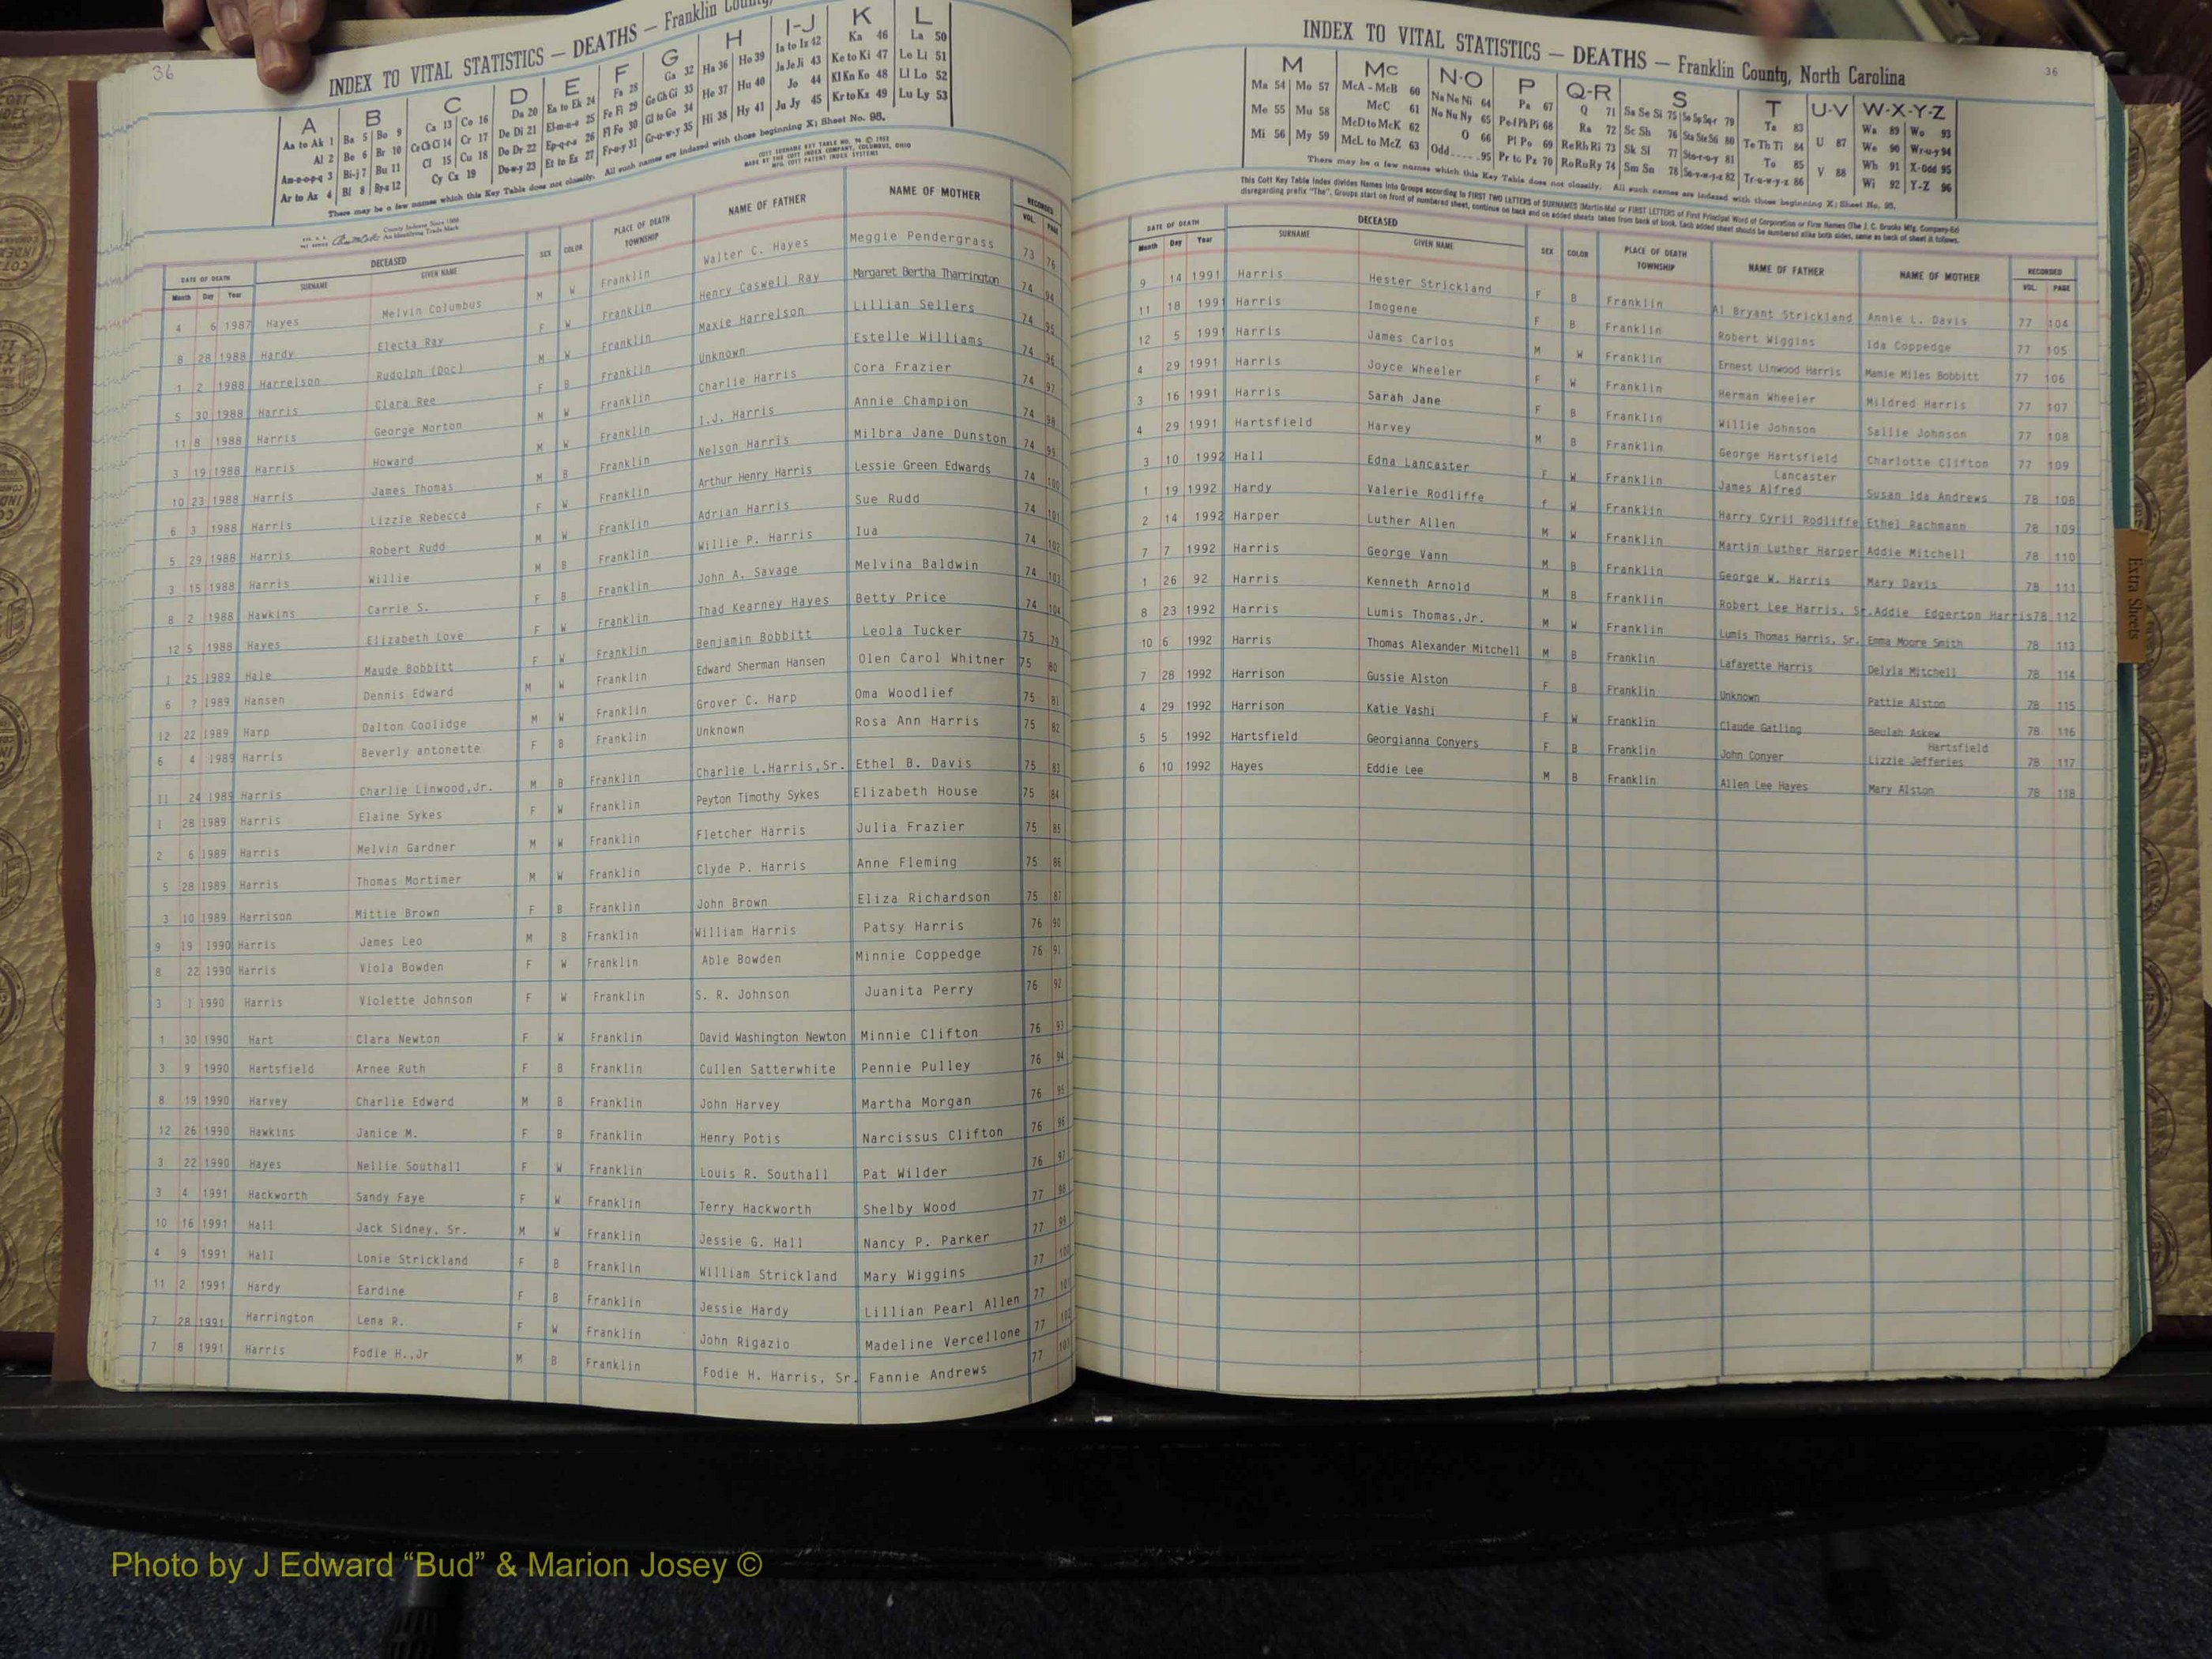 36
INDEX TO VITAL STATISTICS — DEATHS — Franklin County,
A B C D E F G H I-J K L
Aa to Ak 1 Ba 5 Bo 9 Ca 13 Co 16 Da 20 Ea to Ek 24 Fa 28 Ga 32 Ha 36 Ho 39 Ia to Iz 42 Ka 46 La 50
Al 2 Be 6 Br 10 Ce Ch Ci 14 Cr 17 De Di 21 El-m-n-o 25 Fe Fi 29 Ge Gh Gi 33 He 37 Hu 40 Ja Je Ji 43 Ke to Ki 47 Le Li 51
Am-n-o-p-q 3 Bi-j 7 Bu 11 Cl 15 Cu 18 Do Dr 22 Ep-q-r-s 26 Fl Fo 30 Gl to Go 34 Hi 38 Hy 41 Jo 44 Kl Kn Ko 48 Ll Lo 52
Ar to Az 4 Bl 8 By-z 12 Cy Cz 19 Du-w-y 23 Et to Ez 27 Fr-u-y 31 Gr-u-w-y 35 Ju Jy 45 Kr to Kz 49 Lu Ly 53
There may be a few names which this Key Table does not classify. All such names are indexed with those beginning X; Sheet No. 95.
DATE OF DEATH DECEASED SEX COLOR PLACE OF DEATH TOWNSHIP NAME OF FATHER NAME OF MOTHER RECORDED
Month Day Year SURNAME GIVEN NAME VOL. PAGE
4 6 1987 Hayes Melvin Columbus M W Franklin Walter C. Hayes Meggie Pendergrass 73 76
8 28 1988 Hardy Electa Ray F W Franklin Henry Caswell Ray Margaret Bertha Tharrington 74 94
1 2 1988 Harrelson Rudolph (Doc) M W Franklin Maxie Harrelson Lillian Sellers 74 95
5 30 1988 Harris Clara Ree F B Franklin Unknown Estelle Williams 74 96
11 8 1988 Harris George Morton M W Franklin Charlie Harris Cora Frazier 74 97
3 19 1988 Harris Howard M W Franklin I.J. Harris Annie Champion 74 98
10 23 1988 Harris James Thomas M B Franklin Nelson Harris Milbra Jane Dunston 74 99
6 3 1988 Harris Lizzie Rebecca F W Franklin Arthur Henry Harris Lessie Green Edwards 74 100
5 29 1988 Harris Robert Rudd M W Franklin Adrian Harris Sue Rudd 74 101
3 15 1988 Harris Willie M B Franklin Willie P. Harris lua 74 102
8 2 1988 Hawkins Carrie S. F B Franklin John A. Savage Melvina Baldwin 74 103
12 5 1988 Hayes Elizabeth Love F W Franklin Thad Kearney Hayes Betty Price 74 104
1 25 1989 Hale Maude Bobbitt F W Franklin Benjamin Bobbitt Leola Tucker 75 79
6 7 1989 Hansen Dennis Edward M W Franklin Edward Sherman Hansen Olen Carol Whitner 75 80
12 22 1989 Harp Dalton Coolidge M W Franklin Grover C. Harp Oma Woodlief 75 81
6 4 1989 Harris Beverly antonette F B Franklin Unknown Rosa Ann Harris 75 82
11 24 1989 Harris Charlie Linwood,Jr. M B Franklin Charlie L.Harris,Sr. Ethel B. Davis 75 83
1 28 1989 Harris Elaine Sykes F W Franklin Peyton Timothy Sykes Elizabeth House 75 84
2 6 1989 Harris Melvin Gardner M W Franklin Fletcher Harris Julia Frazier 75 85
5 28 1989 Harris Thomas Mortimer M W Franklin Clyde P. Harris Anne Fleming 75 86
3 10 1989 Harrison Mittie Brown F B Franklin John Brown Eliza Richardson 75 87
9 19 1990 Harris James Leo M B Franklin William Harris Patsy Harris 76 90
8 22 1990 Harris Viola Bowden F W Franklin Able Bowden Minnie Coppedge 76 91
3 1 1990 Harris Violette Johnson F W Franklin S. R. Johnson Juanita Perry 76 92
1 30 1990 Hart Clara Newton F W Franklin David Washington Newton Minnie Clifton 76 93
3 9 1990 Hartsfield Arnee Ruth F B Franklin Cullen Satterwhite Pennie Pulley 76 94
8 19 1990 Harvey Charlie Edward M B Franklin John Harvey Martha Morgan 76 95
12 26 1990 Hawkins Janice M. F B Franklin Henry Potis Narcissus Clifton 76 96
3 22 1990 Hayes Nellie Southall F W Franklin Louis R. Southall Pat Wilder 76 97
3 4 1991 Hackworth Sandy Faye F W Franklin Terry Hackworth Shelby Wood 77 98
10 16 1991 Hall Jack Sidney, Sr. M W Franklin Jessie G. Hall Nancy P. Parker 77 99
4 9 1991 Hall Lonie Strickland F B Franklin William Strickland Mary Wiggins 77 100
11 2 1991 Hardy Eardine F B Franklin Jessie Hardy Lillian Pearl Allen 77 101
7 28 1991 Harrington Lena R. F W Franklin John Rigazio Madeline Vercellone 77 102
7 8 1991 Harris Fodie H.,Jr M B Franklin Fodie H. Harris, Sr. Fannie Andrews 77 103
INDEX TO VITAL STATISTICS — DEATHS — Franklin County, North Carolina 36
M Mc N-O P Q-R S T U-V W-X-Y-Z
Ma 54 Mo 57 McA - McB 60 Na Ne Ni 64 Pa 67 Q 71 Sa Se Si 75 So Sp Sq-r 79 Ta 83 U 87 Wa 89 Wo 93
Me 55 Mu 58 McC 61 No Nu Ny 65 Pe-f Ph Pi 68 Ra 72 Sc Sh 76 Sta Ste Sti 80 Te Th Ti 84 V 88 We 90 Wr-u-y 94
Mi 56 My 59 McD to McK 62 O 66 Pl Po 69 Re Rh Ri 73 Sk Sl 77 Sto-r-u-y 81 To 85 Wh 91 X-Odd 95
McL to McZ 63 Odd 95 Pr to Pz 70 Ro Ru Ry 74 Sm Sn 78 Su-v-w-y-z 82 Tr-u-w-y-z 86 Wi 92 Y-Z 96
There may be a few names which this Key Table does not classify. All such names are indexed with those beginning X; Sheet No. 95.
DATE OF DEATH DECEASED SEX COLOR PLACE OF DEATH TOWNSHIP NAME OF FATHER NAME OF MOTHER RECORDED
Month Day Year SURNAME GIVEN NAME VOL. PAGE
9 14 1991 Harris Hester Strickland F B Franklin Al Bryant Strickland Annie L. Davis 77 104
11 18 1991 Harris Imogene F B Franklin Robert Wiggins Ida Coppedge 77 105
12 5 1991 Harris James Carlos M W Franklin Ernest Linwood Harris Mamie Miles Bobbitt 77 106
4 29 1991 Harris Joyce Wheeler F W Franklin Herman Wheeler Mildred Harris 77 107
3 16 1991 Harris Sarah Jane F B Franklin Willie Johnson Sallie Johnson 77 108
4 29 1991 Hartsfield Harvey M B Franklin George Hartsfield Charlotte Clifton 77 109
3 10 1992 Hall Edna Lancaster F W Franklin James Alfred Lancaster Susan Ida Andrews 78 108
1 19 1992 Hardy Valerie Rodliffe F W Franklin Harry Cyril Rodliffe Ethel Rachmann 78 109
2 14 1992 Harper Luther Allen M W Franklin Martin Luther Harper Addie Mitchell 78 110
7 7 1992 Harris George Vann M B Franklin George W. Harris Mary Davis 78 111
1 26 92 Harris Kenneth Arnold M B Franklin Robert Lee Harris, Sr. Addie Edgerton Harris 78 112
8 23 1992 Harris Lumis Thomas,Jr. M W Franklin Lumis Thomas Harris, Sr. Emma Moore Smith 78 113
10 6 1992 Harris Thomas Alexander Mitchell M B Franklin Lafayette Harris Delyla Mitchell 78 114
7 28 1992 Harrison Gussie Alston F B Franklin Unknown Pattie Alston 78 115
4 29 1992 Harrison Katie Vashi F W Franklin Claude Gatling Beulah Askew 78 116
5 5 1992 Hartsfield Georgianna Conyers F B Franklin John Conyer Lizzie Jefferies Hartsfield 78 117
6 10 1992 Hayes Eddie Lee M B Franklin Allen Lee Hayes Mary Alston 78 118
Extra Sheets
Photo by J Edward “Bud” & Marion Josey ©